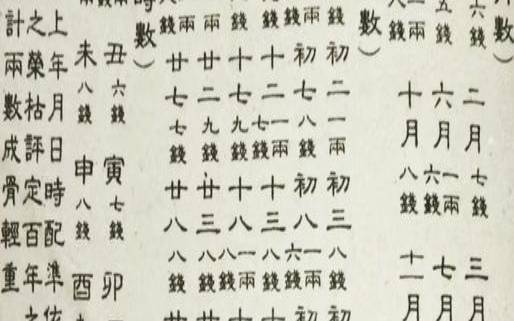 數）
六錢 二月七錢 三月
五錢 六月一兩六錢 七月
兩錢 十月八錢 十一月
數）
錢 初二一兩 初三八錢 初
錢 初七八錢 初八一兩六錢 初
八錢 十二一兩七錢 十三八錢 十
錢 十七九錢 十八一兩八錢 十
八錢 廿二九錢 廿三八錢 廿
兩 廿七七錢 廿八八錢 廿
時數）
丑六錢 寅七錢 卯
未八錢 申八錢 酉
上年月日時配準依
之榮枯評定百年之
計兩數成骨輕重